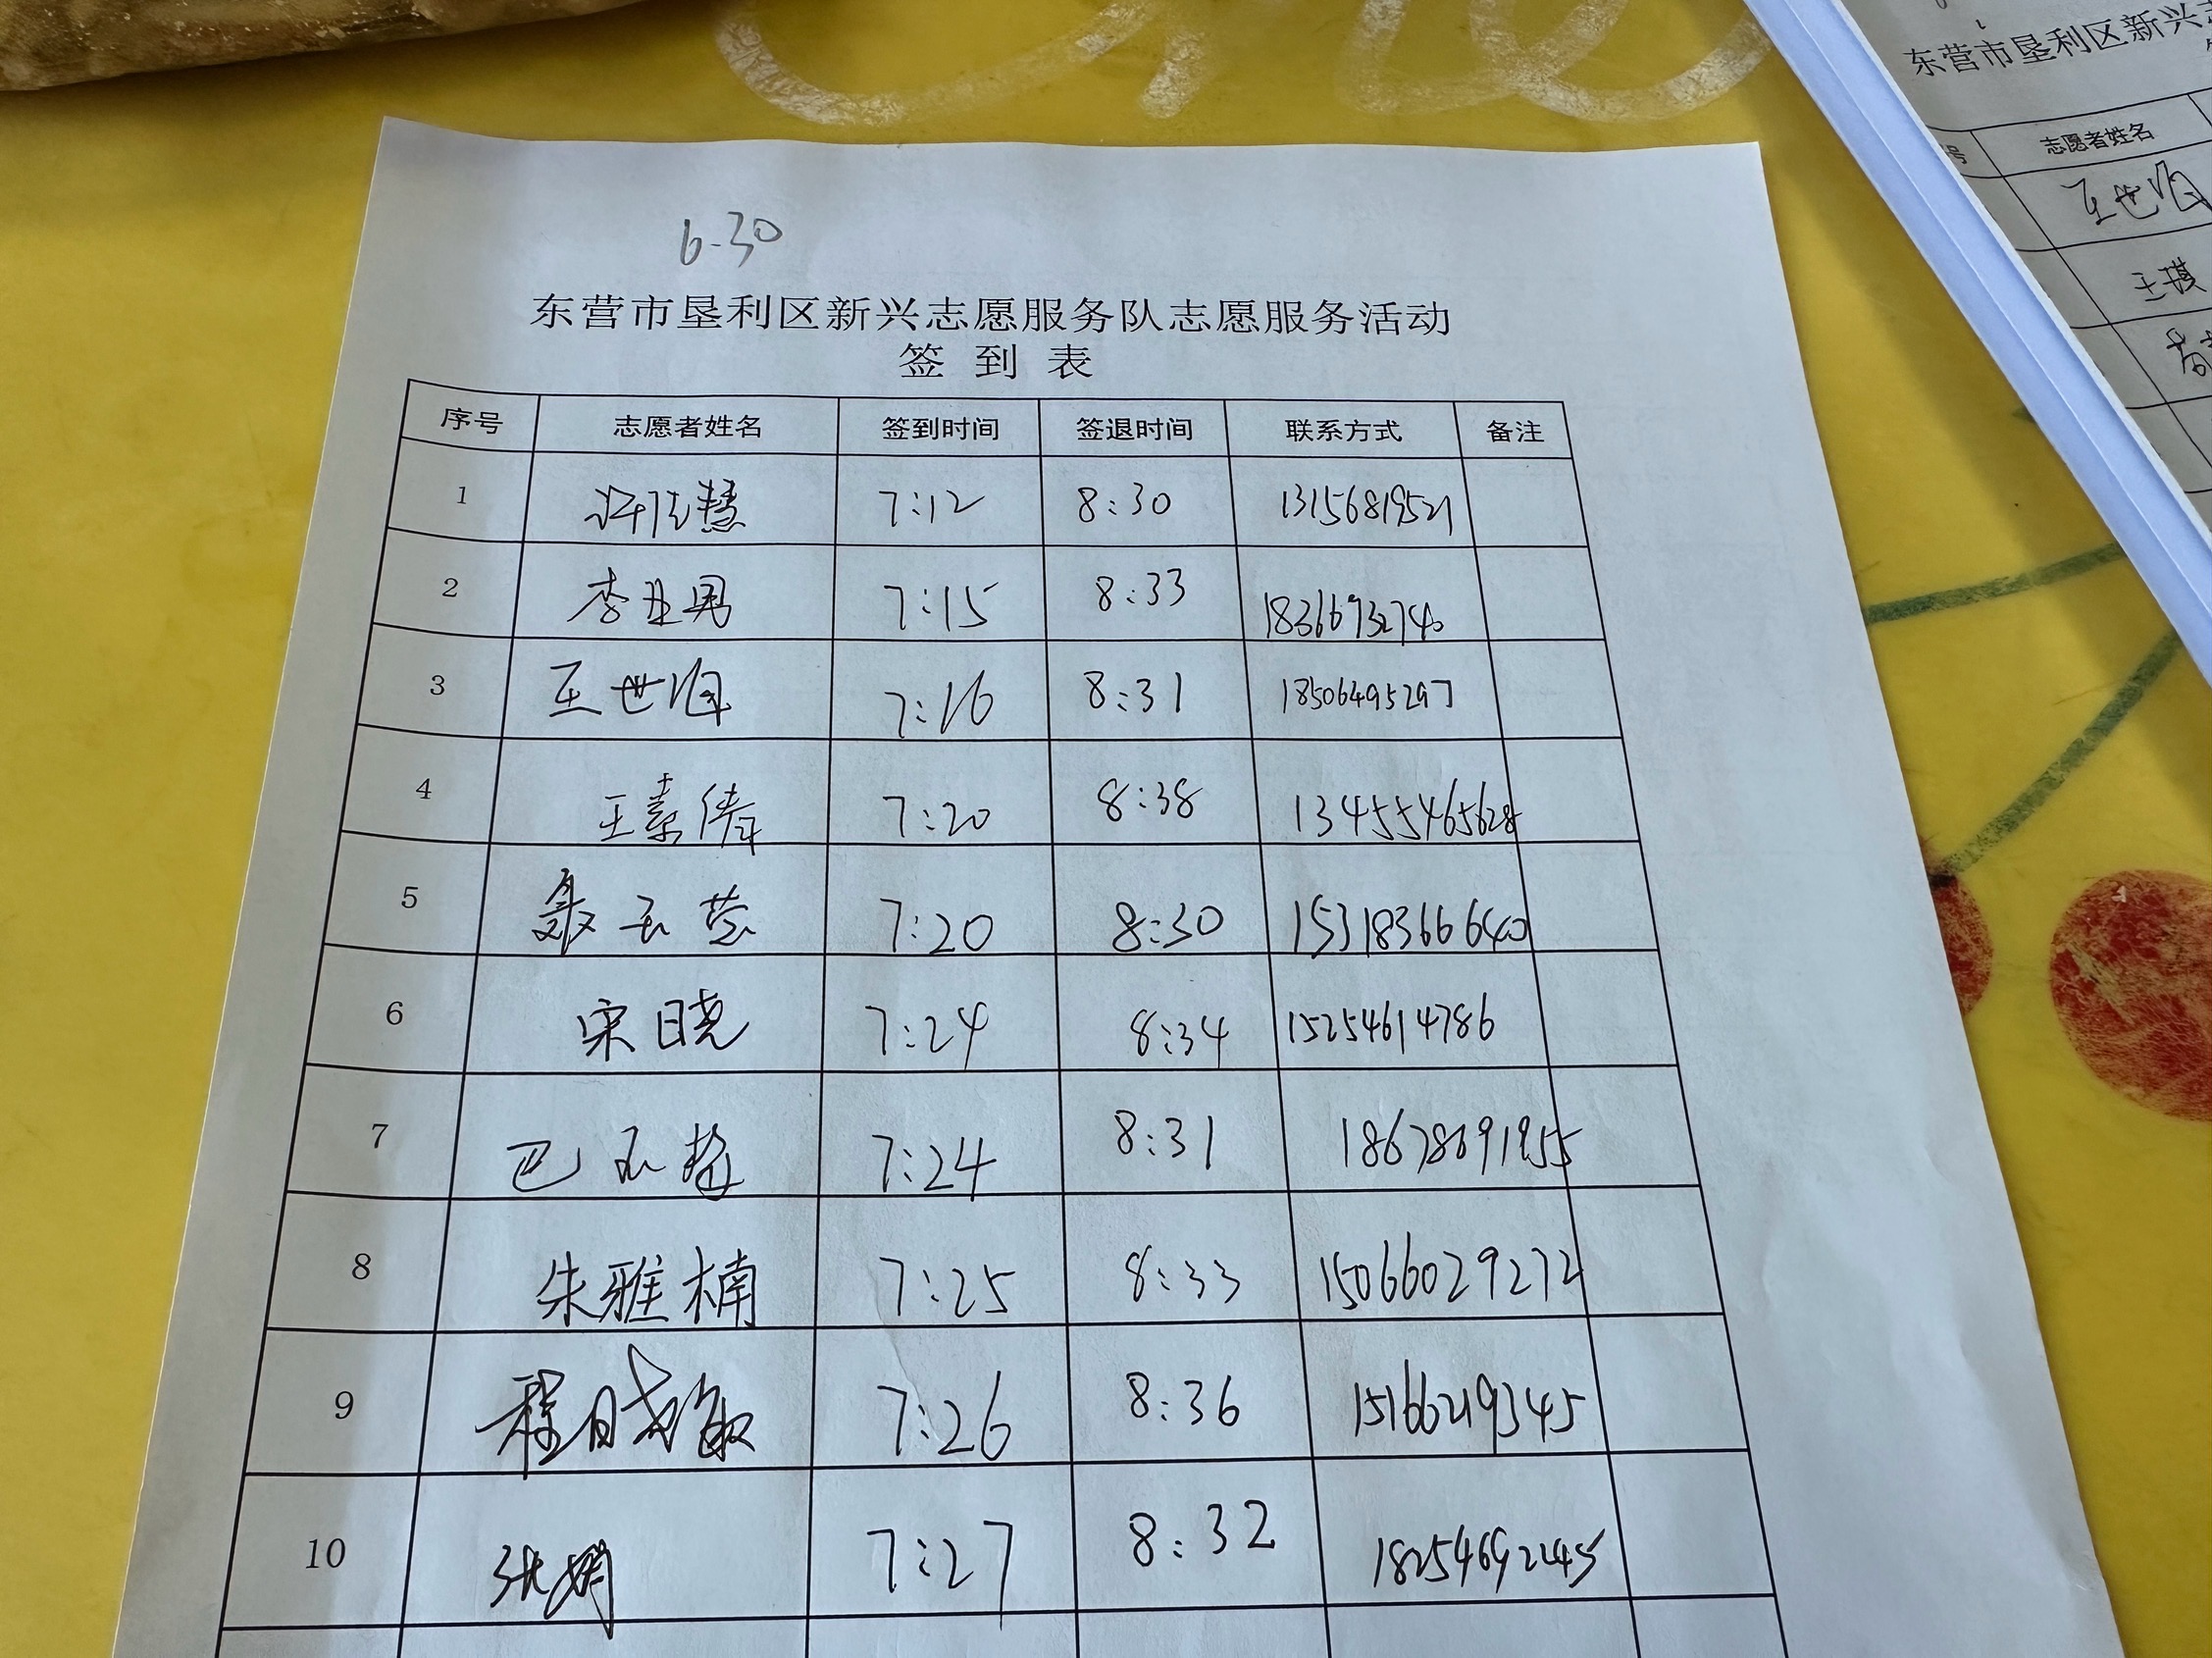 6-30
东营市垦利区新兴志愿服务队志愿服务活动
签到表
序号 志愿者姓名 签到时间 签退时间 联系方式 备注
1 7:12 8:30 13156819521
2 李亚男 7:15 8:33 18366732740
3 王世 7:16 8:31 18506495297
4 王素倩 7:20 8:38 13455465628
5 聂玉芸 7:20 8:30 15318366640
6 宋日晓 7:24 8:34 15254614786
7 巴玉梅 7:24 8:31 18678691955
8 朱雅楠 7:25 8:33 15066029272
9 程晓敏 7:26 8:36 15166219345
10 张娟 7:27 8:32 18254692245
东营市垦利区新兴
号 志愿者姓名
王世
王琪